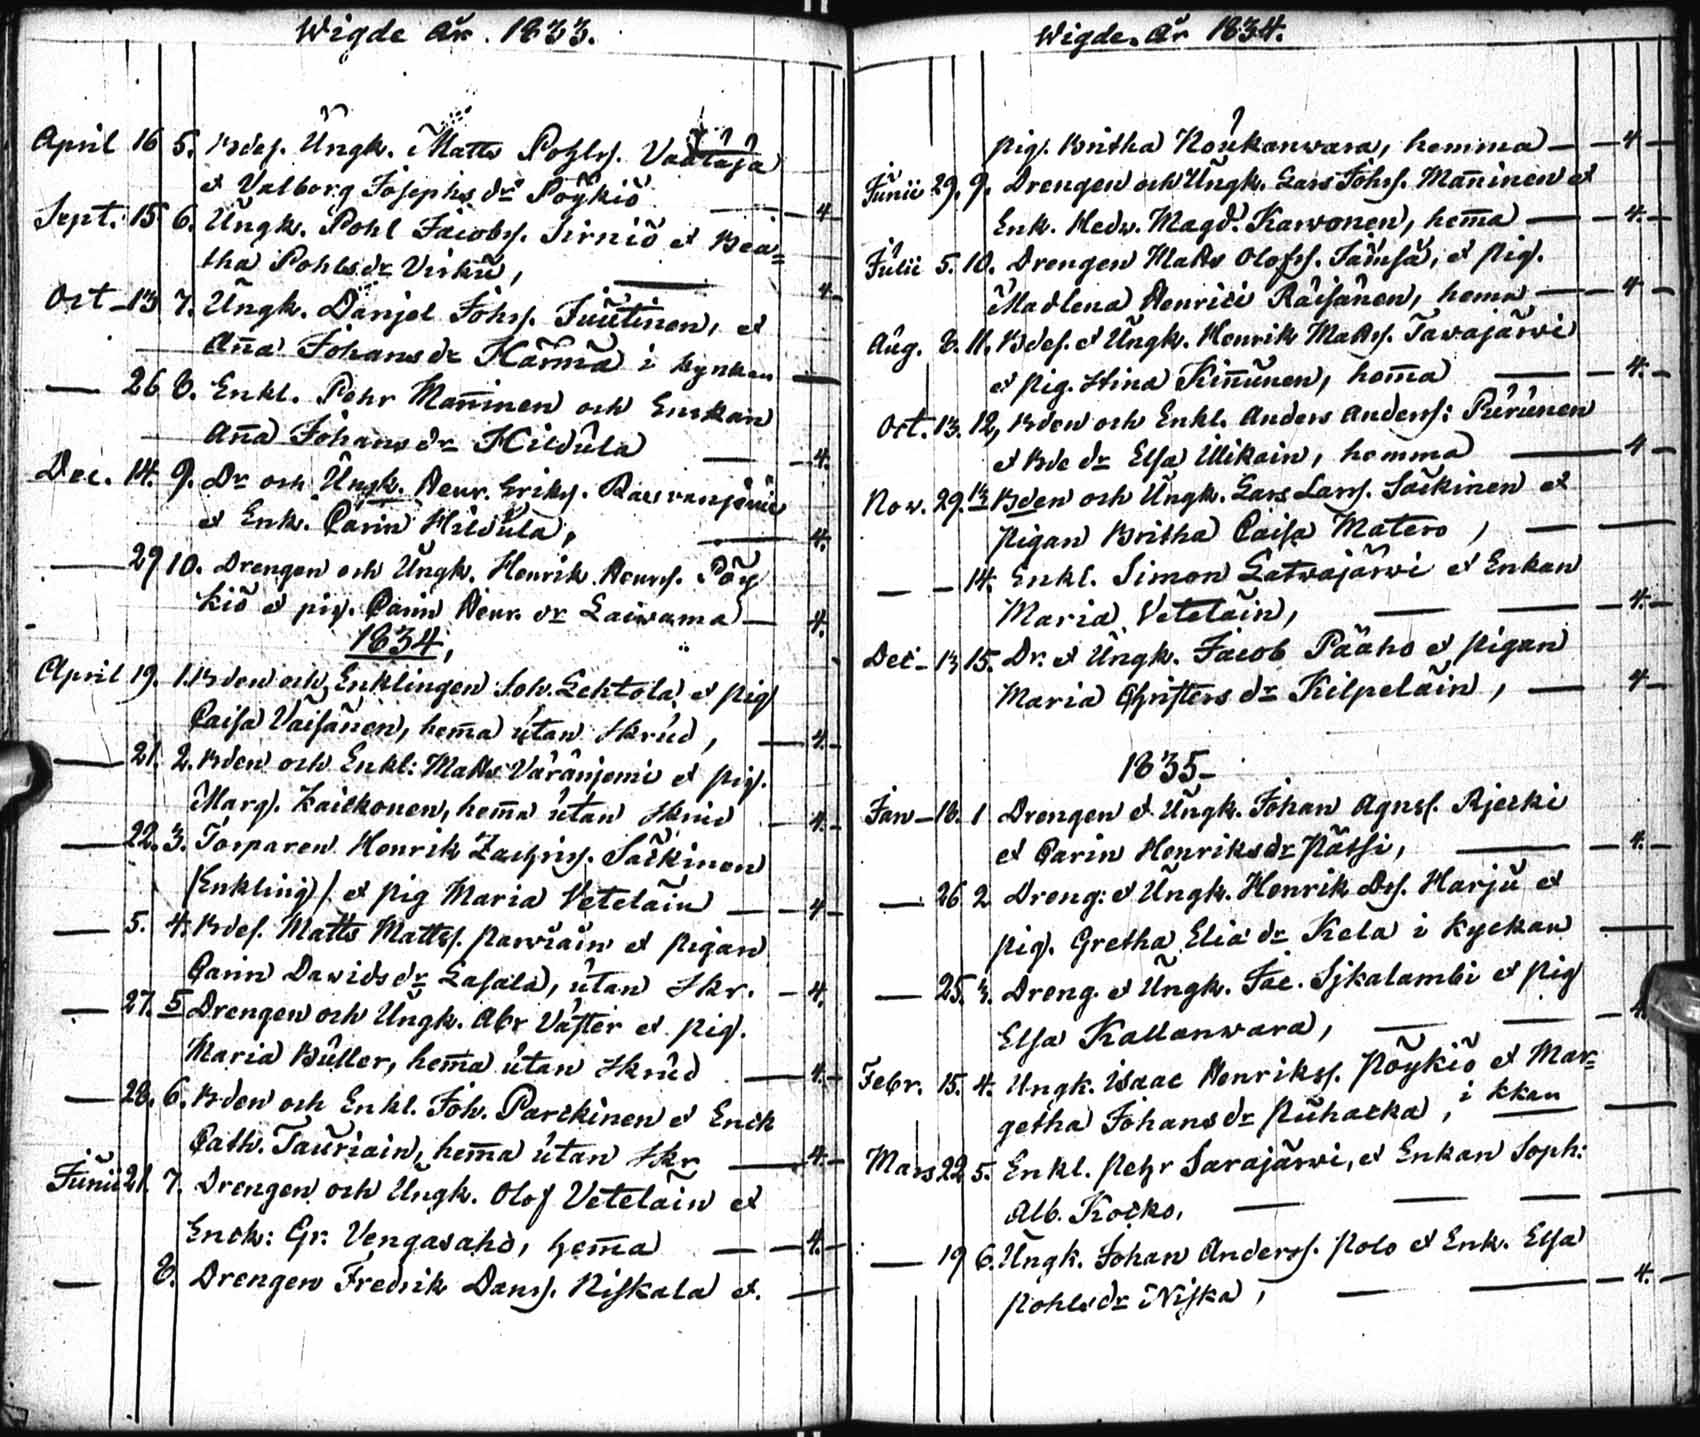 Wigde år. 1833.
April 16 5. Bdes. Ungk. Matts Pohls. Vaataja
et Valborg Josephs dr Pöykiö — 4
Sept. 15 6. Ungk. Pohl Jacobs. Sirniö et Bea=
tha Pohlsdr Virku, — 4
Oct — 13 7. Ungk. Daniel Johs. Juutinen, et
Aña Johansdr Härmä i kyrkan —
— 26 8. Enkl. Pehr Mañinen och Enkan
Aña Johansdr Hildula — 4.
Dec. 14. 9. Dr och Ungk. Henr. Eriks.
et Enk. Carin Hildula, — 4.
— 29 10. Drengen och Ungk. Henrik Henrs. Pöy
kiö et pig. Carin Henr. dr Laiwama — 4.
1834,
April 19. 1. Bden och Enklingen Joh. Lehtola et pig
Caisa Väisänen, hem̄a utan Skrud, — 4.
— 21. 2. Bden och Enkl: Matts Väränjemi et pig.
Marg. Kaickonen, hem̄a utan Skrud — 4.
— 22. 3. Torparen Henrik Zachris. Säckinen
/Enkling/ et pig Maria Vetelain — 4
— 5. 4. Bdes. Matts Matts. Parviain et Pigan
Carin Davidsdr Lasala, utan Skr. — 4.
— 27. 5 Drengen och Ungk. Abr Väster et pig.
Maria Buller, hem̄a utan Skrud — 4.
— 28. 6. Bden och Enkl. Joh. Parckinen et Enck
Cath. Tauriain, hem̄a utan Skr — 4.
Junii 21. 7. Drengen och Ungk. Olof Vetelain et
Enck: Gr. Vengasaho, hem̄a — 4.
— 8. Drengen Fredrik Dans. Niskala et. —
Wigde. År 1834.
pig. Britha Noukanwara, hemma — 4
Junii 29. 9. Drengen och Ungk. Lars Johs. Mañinen et
Enk. Hedv. Magd. Karvonen, hem̄a — 4.
Julii 5. 10. Drengen Matts Olofs. Jämsä, et pig.
Madlena Henrici Räisänen, hema — 4
Aug. 8. 11. Bdes. et Ungk. Henrik Matts. Tavajärvi
et pig. Stina Kiñunen, hom̄a — 4.
Oct. 13. 12, Bden och Enkl. Anders Anders: Purunen
et Bde dr Elsa Mikain, homma — 4
Nov. 29. 13 Bden och Ungk. Lars Lars. Säckinen et
Pigan Britha Caisa Matero, —
— 14. Enkl. Simon Latvajärvi et Enkan
Maria Vetelain, — 4.
Dec — 13 15. Dr. et Ungk. Jacob Pääho et pigan
Maria Christers dr Kilpelain, — 4
1835 —
Jan — 18. 1 Drengen et Ungk. Johan Agns. Rjecki
et Carin Henriksdr Pätsi, — 4.
— 26 2 Dreng: et Ungk. Henrik Ds. Harju et
pig. Gretha Elia dr Kela i kyckan —
— 25. 3. Dreng. et Ungk. Jac. Sjkalambi et pig
Elsa Kallanwara, — 4.
Febr. 15. 4. Ungk. Isaac Henriks. Pöykiö et Mar=
getha Johansdr Puhacka, i kkan —
Mars 22 5. Enkl. Pehr Sarajärvi, et Enkan Soph:
Alb. Kocko, —
— 19 6. Ungk. Johan Anders. Polo et Enk. Elsa
Pohlsdr Niska, — 4.